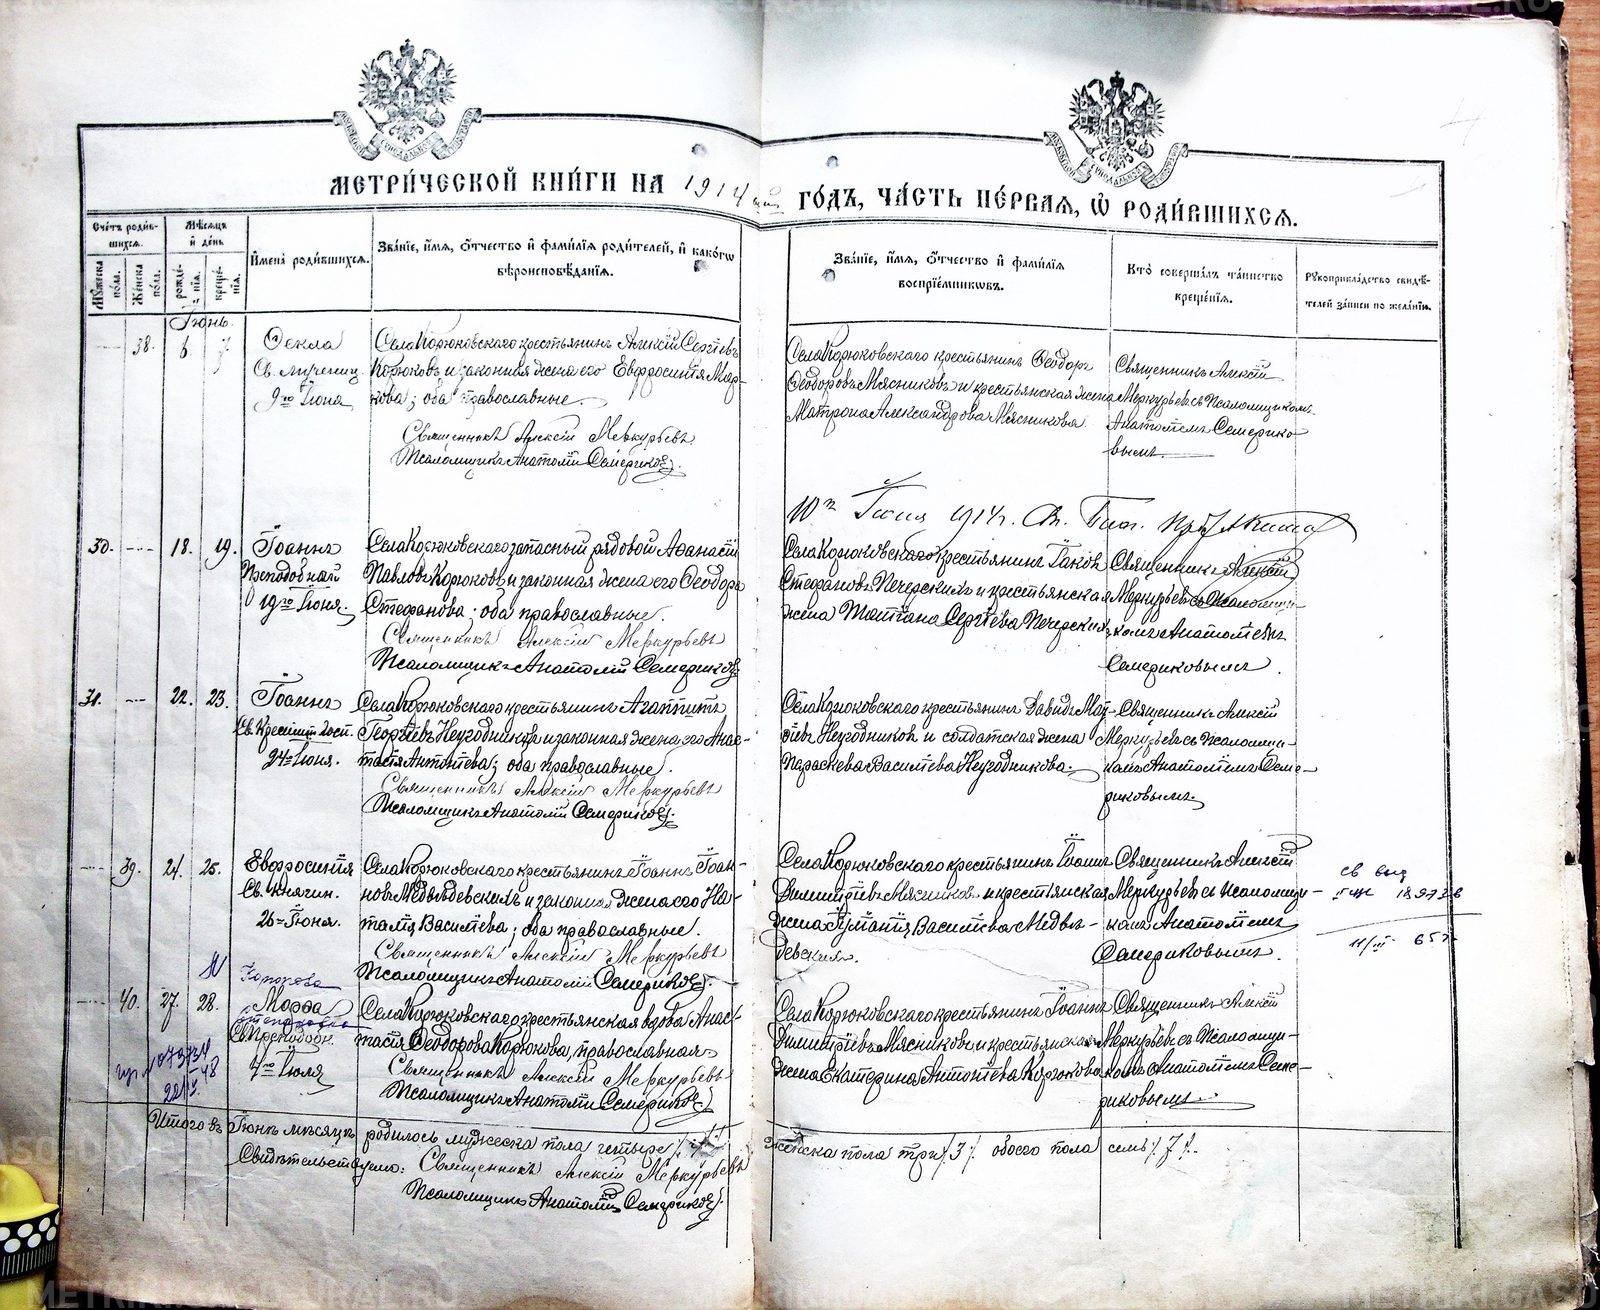 МЕТРИ́ЧЕСКОЙ КНИ́ГИ НА 1914 ый ГО́ДЪ, ЧА́СТЬ ПЕ́РВАЯ, Ѿ РОДИ́ВШИХСЯ.
Сче́тъ роди́вшихся.
Мѣ́сяцъ и҆ де́нь
Му́жеска по́ла.
Же́нска по́ла.
рожде́нїя.
креще́нїя.
И҆мена̀ роди́вшихся.
Зва́нїе, и҆́мя, о҆́тчество и҆ фами́лїя роди́телей, и҆ како́гѡ вѣроисповѣ́данїя.
Зва́нїе, и҆́мя, о҆́тчество и҆ фами́лїя воспрїе́мникѡвъ.
Кто̀ соверша́лъ та́инство креще́нїя.
Рꙋкоприкла́дство свидѣ́телей за́писи по жела́нїи.
Іюнь.
38. 6 7
Ѳекла
Св. мучениц
9го Іюня
Села Корюковскаго крестьянинъ Алексій Сергіевъ
Корюковъ и законная жена его Евфросинія Мар-
кова; оба православные.
Священникъ Алексій Меркурьевъ
Псаломщикъ Анатолій Семериковъ.
Села Корюковскаго крестьянинъ Ѳеодоръ
Ѳеодоровъ Мясниковъ и крестьянская жена
Матрона Александрова Мясникова
Священникъ Алексій
Меркурьевъ съ псаломщикомъ
Анатоліемъ Семерико
вымъ.
10 Іюня 1914 г.
30. 18. 19.
Іоаннъ
Преподобный
19го Іюня.
Села Корюковскаго запасный рядовой Аѳанасій
Павловъ Корюковъ и законная жена его Ѳеодора
Стефанова; оба православные.
Священникъ Алексій Меркурьевъ
Псаломщикъ Анатолій Семериковъ
Села Корюковскаго крестьянинъ Іаковъ
Стефановъ Печерскихъ и крестьянская
жена Татіана Сергіева Печерскихъ
Священникъ Алексій
Меркурьевъ съ псаломщи-
комъ Анатоліемъ
Семериковымъ.
31. 22. 23.
Іоаннъ
Св. Крестит. Госп.
24го Іюня.
Села Корюковскаго крестьянинъ Агаппитъ
Георгіевъ Негодниковъ и законная жена его Анас-
тасія Антоніева; оба православные.
Священникъ Алексій Меркурьевъ
Псаломщикъ Анатолій Семериковъ.
Села Корюковскаго крестьянинъ Давидъ Мат-
ѳіевъ Негодниковъ и солдатская жена
Параскева Василіева Негодникова.
Священникъ Алексій
Меркурьевъ съ псаломщи-
комъ Анатоліемъ Семе-
риковымъ.
39. 24. 25.
Евфросинія
Св. княгин.
26го Іюня.
Села Корюковскаго крестьянинъ Іоаннъ Іоан-
новъ Медвѣдевскихъ и законная жена его На-
талія Василіева; оба православные.
Священникъ Алексій Меркурьевъ
Псаломщикъ Анатолій Семериковъ.
Села Корюковскаго крестьянинъ Іоаннъ
Димитріевъ Мясниковъ и крестьянская
жена Василіева Медвѣ-
девскихъ.
Священникъ Алексій
Меркурьевъ съ псаломщи-
комъ Анатоліемъ
Семериковымъ.
св выд
11/III 65 г
40. 27. 28.
Марѳа
Св. Преподобн.
4го Іюля
Села Корюковскаго крестьянская вдова Анас-
тасія Ѳеодорова Корюкова, православная
Священникъ Алексій Меркурьевъ
Псаломщикъ Анатолій Семериковъ
Села Корюковскаго крестьянинъ Іоаннъ
Димитріевъ Мясниковъ и крестьянская
жена Екатерина Антоніева Корюкова
Священникъ Алексій
Меркурьевъ съ псаломщи-
комъ Анатоліемъ Семе-
риковымъ.
Итого въ Іюнѣ мѣсяцѣ родилось мужеска пола четыре /4/ женска пола три /3/ обоего пола семь /7/.
Свидѣтельствуемъ: Священникъ Алексій Меркурьевъ
Псаломщикъ Анатолій Семериковъ.